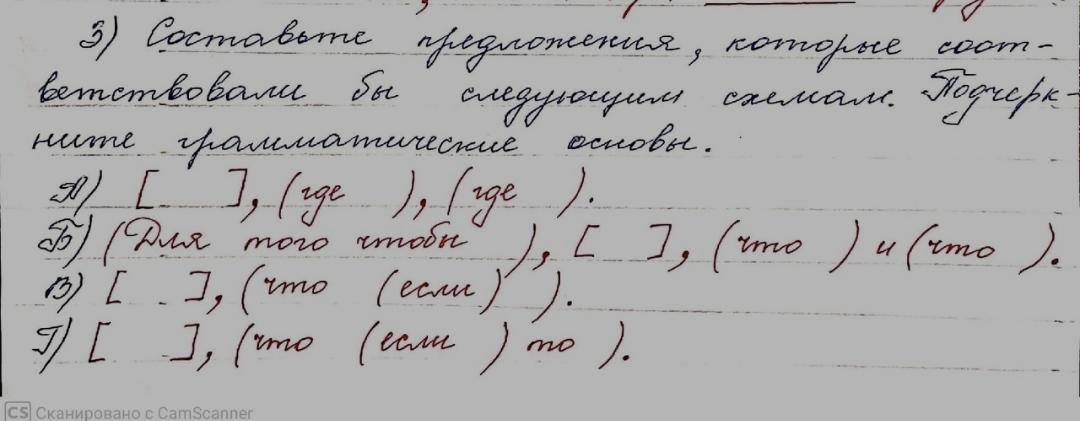 3) Составьте предложения, которые соот-
ветствовали бы следующим схемам. Подчерк-
ните грамматические основы.
А) [ ], (где ), (где ).
Б) (Для того чтобы ), [ ], (что ) и (что ).
В) [ ], (что (если) ).
Г) [ ], (что (если ) то ).
CS Сканировано с CamScanner